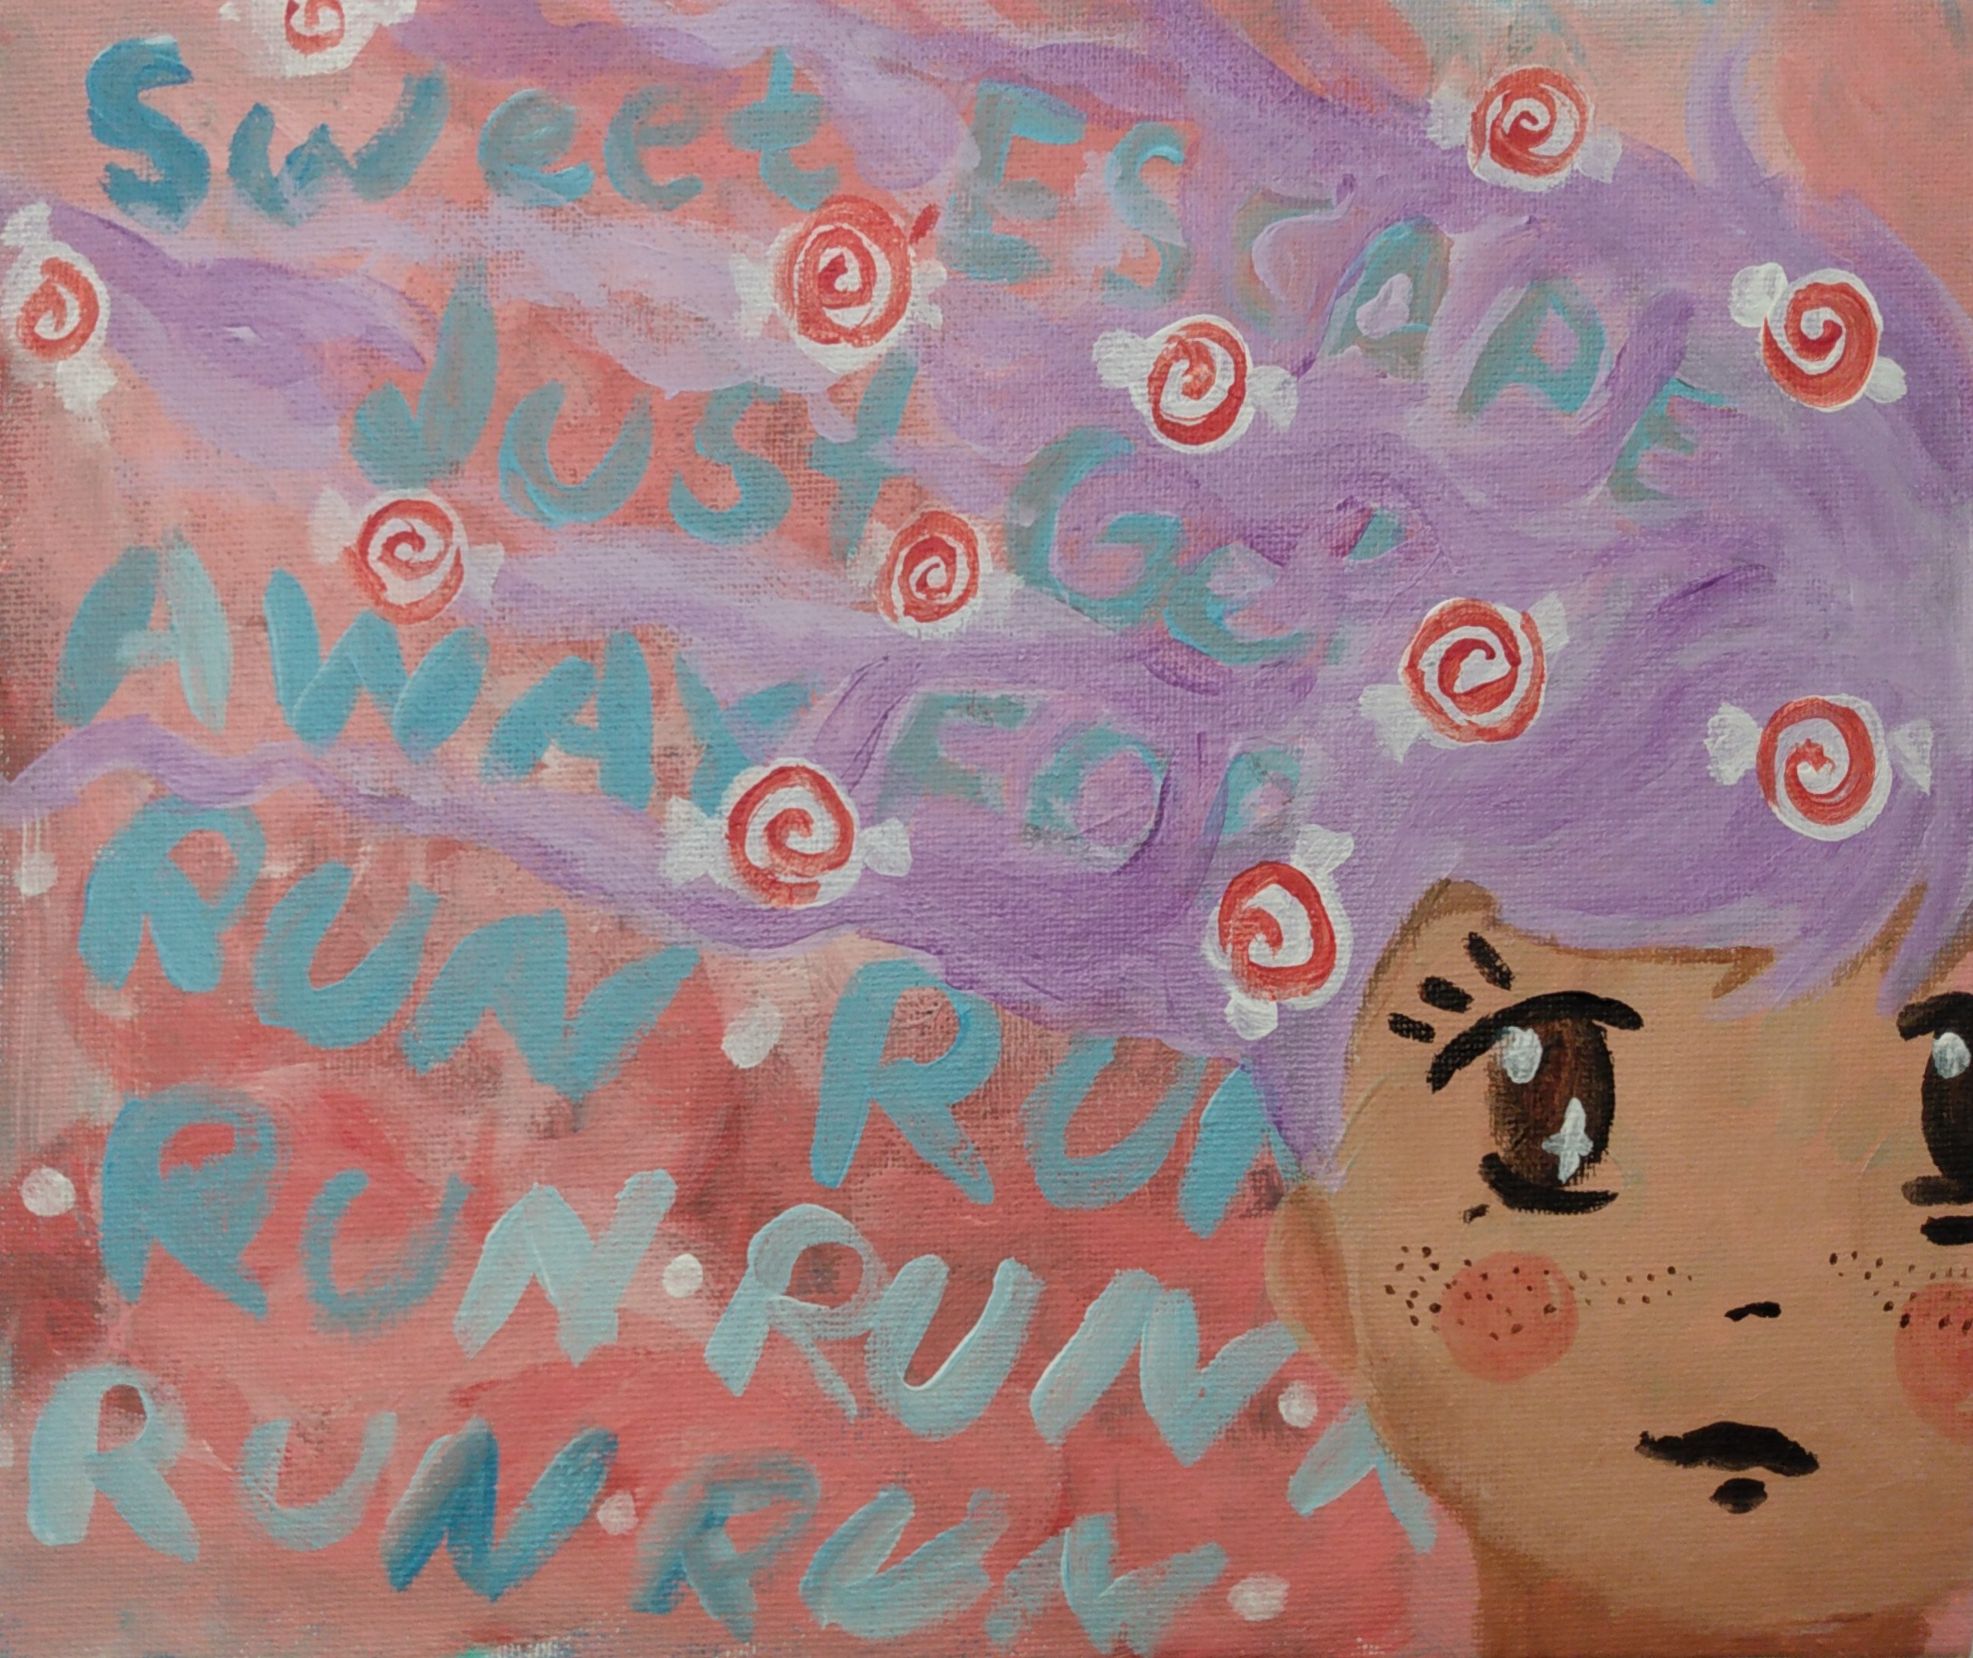 Sweet ESCAPE
Just Get
AWAY FOR
RUN RUN
RUN RUN
RUN RUN